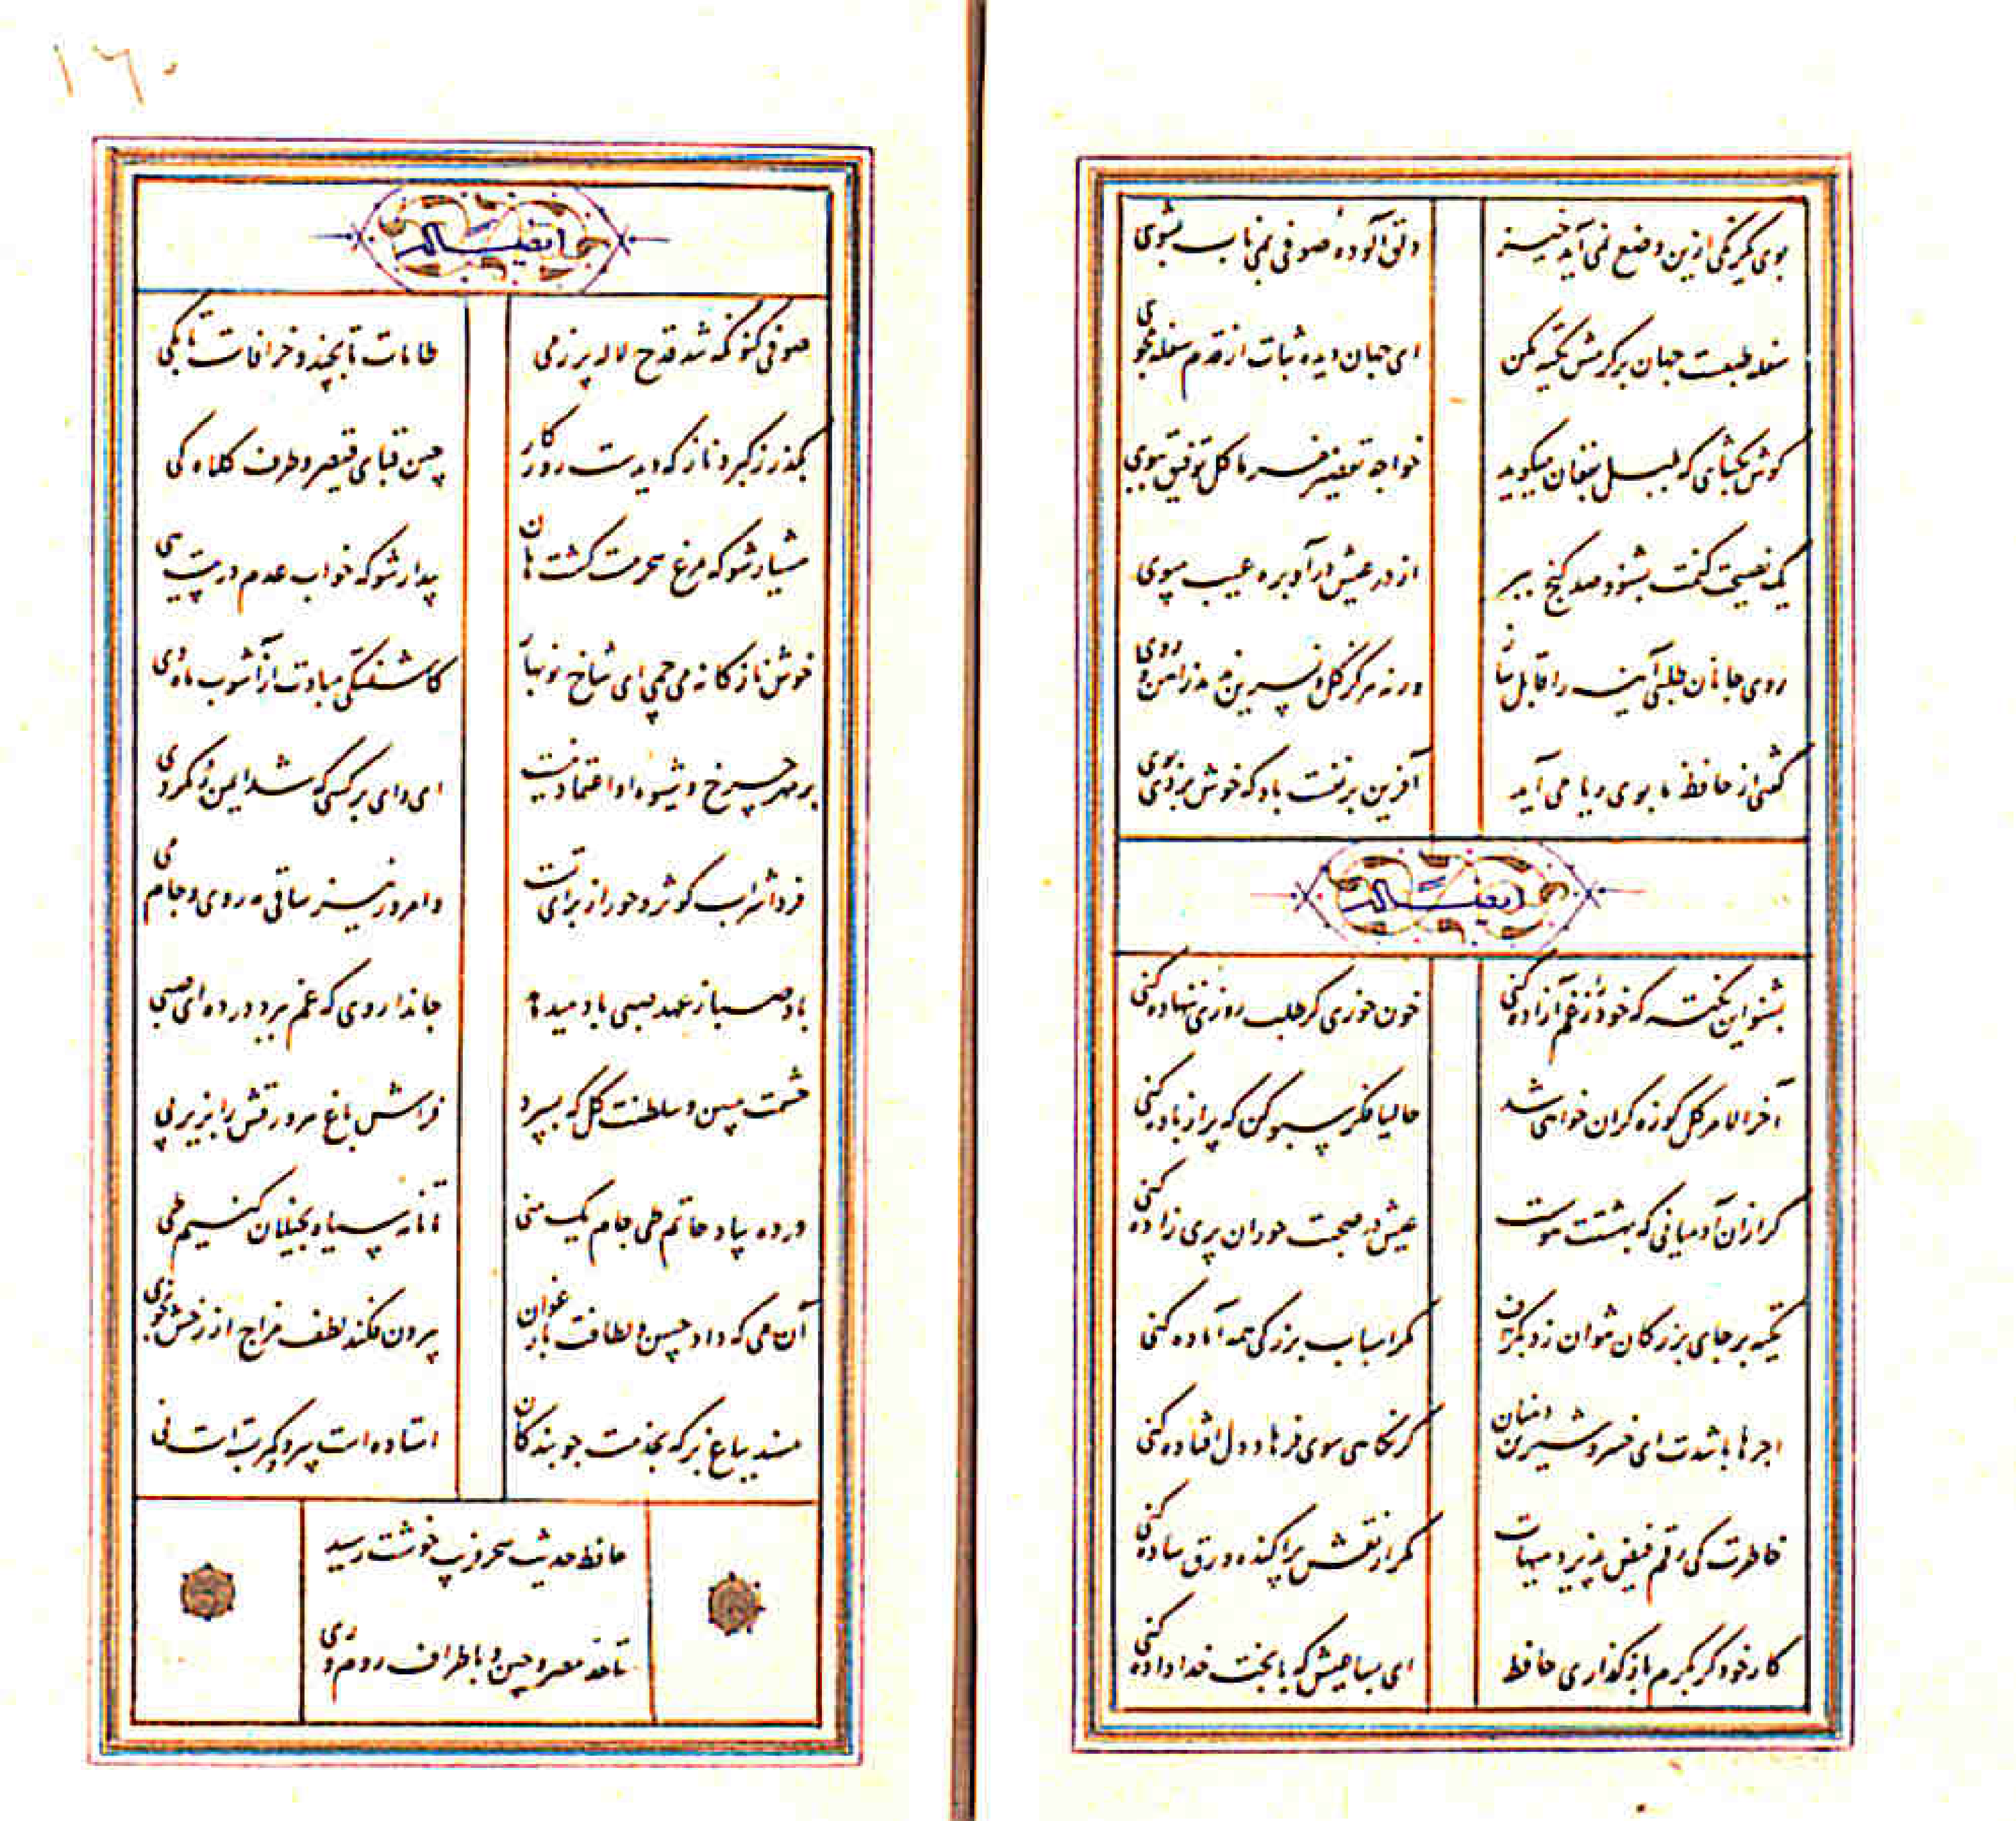 بوی یکرنگی ازین وضع نمی آید خیز
دلق آلوده صوفی بمی ناب بشوی
سفله طبعست جهان بر کرمش تکیه مکن
ای جهان دیده ثبات از قدم سفله مجوی
کوش بکشای که بلبل بفغان میکوید
خواجه تقصیر مفرما کل توفیق ببوی
یک نصیحت کنمت بشنو و صد کنج ببر
از در عیش درآ و بره عیب مپوی
روی جانان طلبی آینه را قابل ساز
ورنه هرکز کل و نسرین ندمد زآهن و روی
کفتی از حافظ ما بوی ریا می آید
آفرین بر نفست باد که خوش بردی بوی
ایضاله
بشنو این نکته که خود را ز غم آزاده کنی
خون خوری کر طلب روزی ننهاده کنی
آخر الامر کل کوزه کران خواهی شد
حالیا فکر سبو کن که پر از باده کنی
کر از آن آدمیانی که بهشتت هوست
عیش در صحبت حوران پری زاده کنی
تکیه بر جای بزرکان نتوان زد بکزاف
مکر اسباب بزرکی همه آماده کنی
اجرها باشدت ای خسرو شیرین دهنان
کر نکاهی سوی فرهاد دل افتاده کنی
خاطرت کی رقم فیض پذیرد هیهات
مکر از نقش پراکنده ورق ساده کنی
کار خود کر بکرم باز کذاری حافظ
ای بسا عیش که با بخت خداداده کنی
۱۶۰
ایضاله
صوفی کنونکه شد قدح لاله پر ز می
طامات تا بچند و خرافات تا بکی
بکذر ز کبر و ناز که دیدست روزکار
چین قبای قیصر و طرف کلاه کی
هشیار شو که مرغ سحر مست کشت هان
بیدار شو که خواب عدم در پیست هی
خوش نازکانه می چمی ای شاخ نوبهار
کاشفتکی مبادت از آشوب باد دی
بر مهر چرخ و شیوه او اعتماد نیست
ای وای بر کسی که شد ایمن ز مکر وی
فردا شراب کوثر و حور از برای تست
و امروز نیز ساقی مه روی و جام می
باد صبا ز عهد صبی یاد میدهد
جان داروی که غم ببرد در ده ای صبی
حشمت مبین و سلطنت کل که بسپرد
فراش باغ هر ورقش را بزیر پی
در ده بیاد حاتم طی جام یک منی
تا نامه سیاه بخیلان کنیم طی
آن می که داد حسن و لطافت بارغوان
بیرون فکند لطف مزاج از رخش بخوی
مسند بباغ بر که بخدمت چو بندکان
استاده است سرو و کمر بسته است نی
حافظ حدیث سحر فریب خوشت رسید
تا حد مصر و چین و باطراف روم و ری